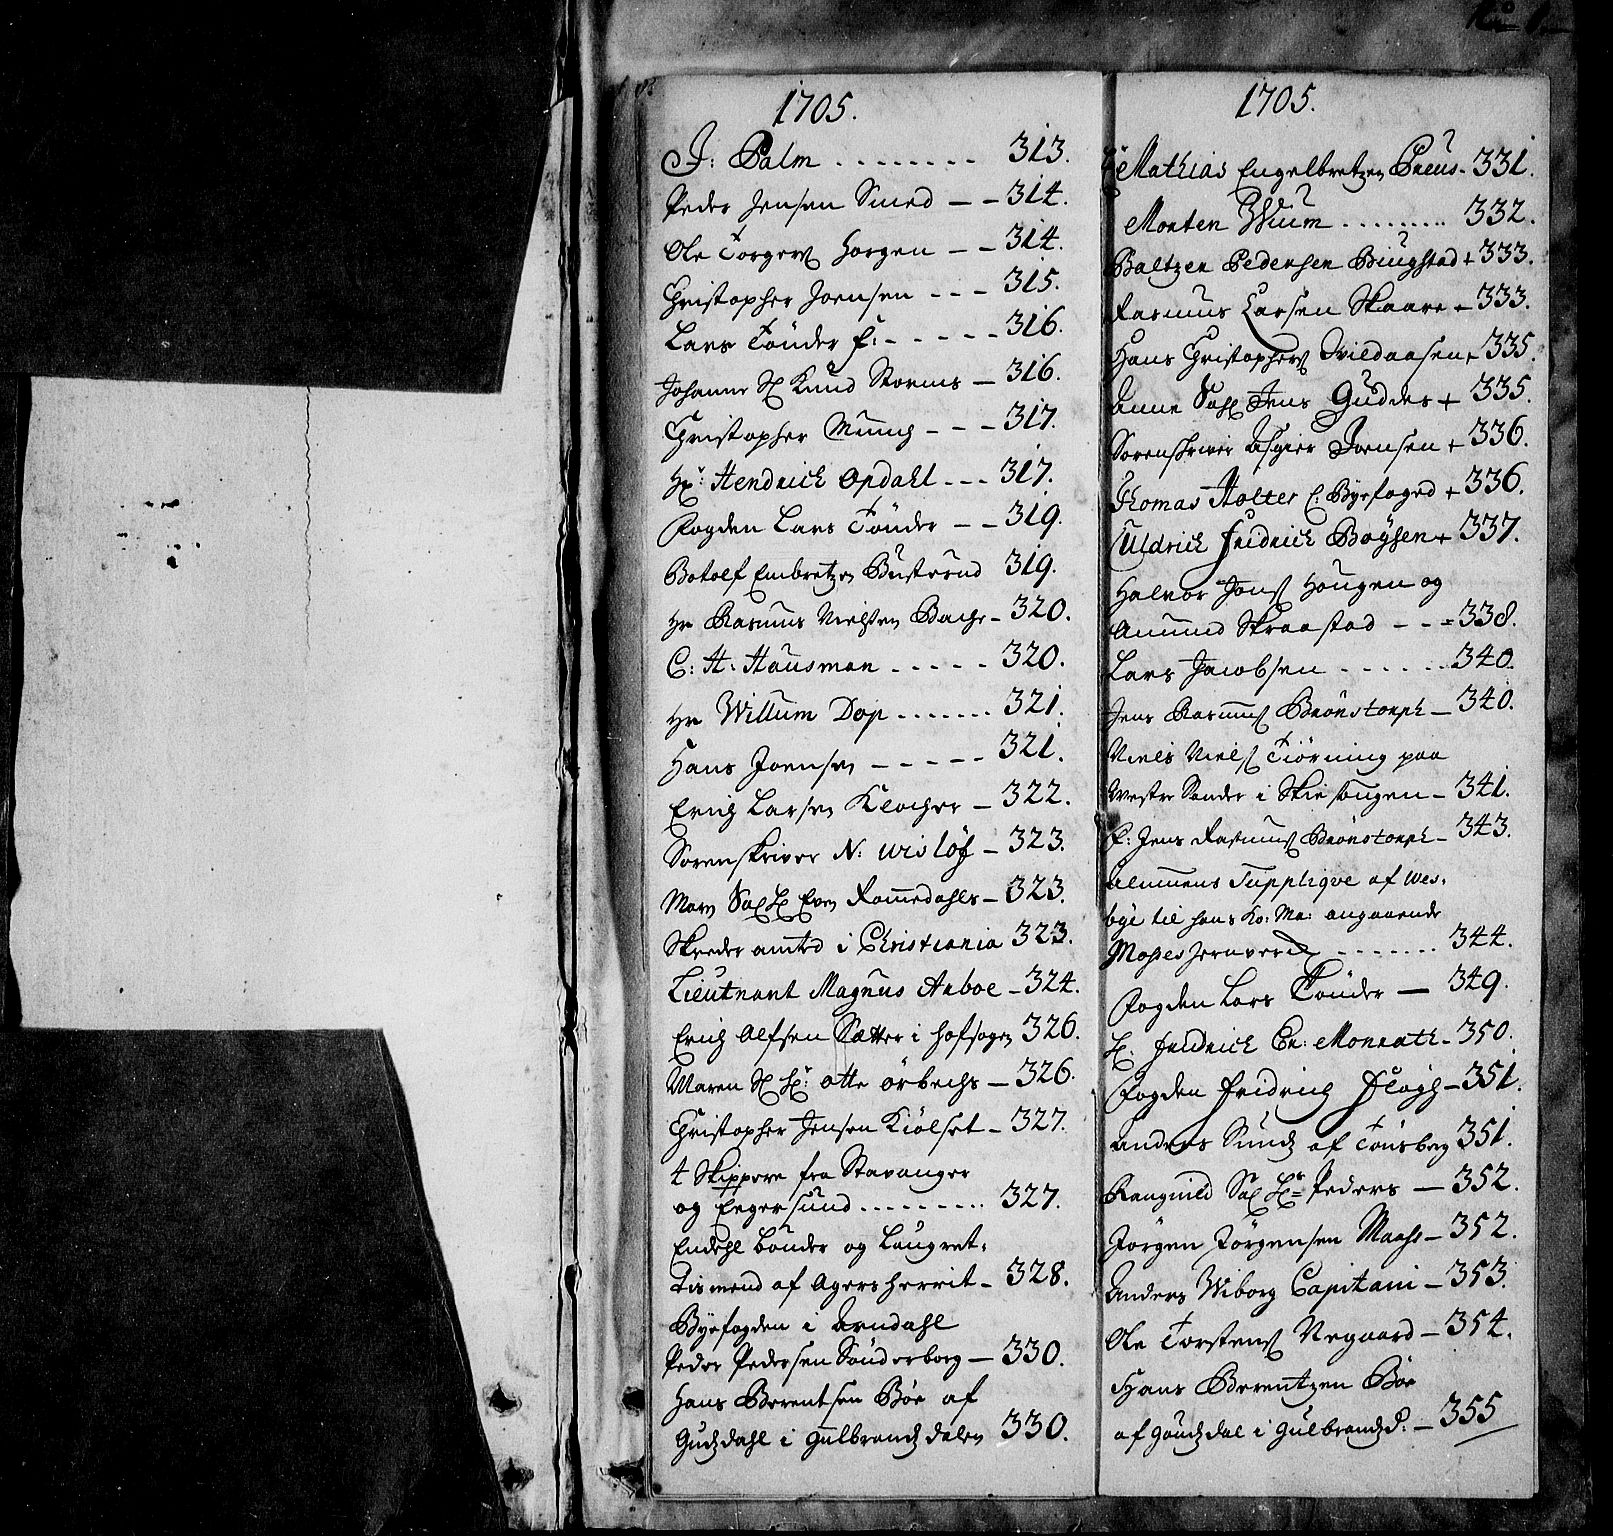 1705.
J: Palm . . . . . . . . 313.
Peder Jensen Smed – – 314.
Ole Torgers Horgen – – 314.
Christopher Joensen – – – 315.
Lars Tönder f: – – – – – 316.
Johanne Knud Storms – 316.
Christopher Munch – – – 317.
Hr: Hendrich Opdahl – – – 317.
Fogden Lars Tönder – – 319.
Botolf Embretzen Busterud 319.
Hr Rasmus Nielsen Bache – 320.
C: H: Hausman . . . . . 320.
Hr Willum Dop . . . . . . . 321.
Hans Joensen – – – – – 321.
Erich Larsen Klocher – 322.
Sorenskriver N: Wislöf – 323.
Mary Sal Even Rommedahls – 323.
Skreder amted i Christiania 323.
Lieutnant Magnus Arboe – 324.
Erich Olfsen Sætter i Hofsogn 326.
Maren Sl Hr: Otte Örbechs – 326.
Christopher Jensen Kiölset – 327.
4 Skippere fra Stavanger
og Egersund . . . . . . . . . . 327.
Endehl bönder og Laugret-
tismend af Agersherrit – 328.
Byefogden i Arndahl
Peder Pedersen Sönderborg – 330.
Hans Berentsen Böe af
Gudsdahl i Gulbrandsdalen 330.
1705.
Mathias Engelbretzen Preus – 331.
Morten Wium . . . . . . . . . 332.
Baltzer Pedersen Biugstad + 333.
Rasmus Larsen Skaare – 333.
Hans Christophers Svildaasen + 335.
Anne Sal Jens Guddes + 335.
Sorenskriver Asgier Joensen + 336.
Thomas Holter C. Byefoged + 336.
Uldrich Fridrich Boysen + 337.
Halvor Jons Hougen og
Amund Skraastad – – – 338.
Lars Jacobsen . . . . . . . 340.
Jens Rasmus Brönstorph – 340.
Niels Niels Tiörning paa
Westre Sander i Skiesougen – 341.
C: Jens Rasmus Brönstorph – 343.
Alemuens Supplique af Wes-
bye til Hans Ko: Ma: angaaende
Mosses Jernverck . . . . . . . 344.
Fogden Lars Tönder – 349.
H: Fridrich Er: Monrath – 350.
Fogden Fridrich Flogh – 351.
Anders Sunds af Tönsberg 351.
Rangnild Sal Hr Peders – 352.
Jörgen Jörgensen Maahs – 352.
Anders Wiborg Capitani – 353.
Ole Torstens Negaard – 354.
Hans Berentzen Böe
af Goudsdal i Gulbrandsd. – 355